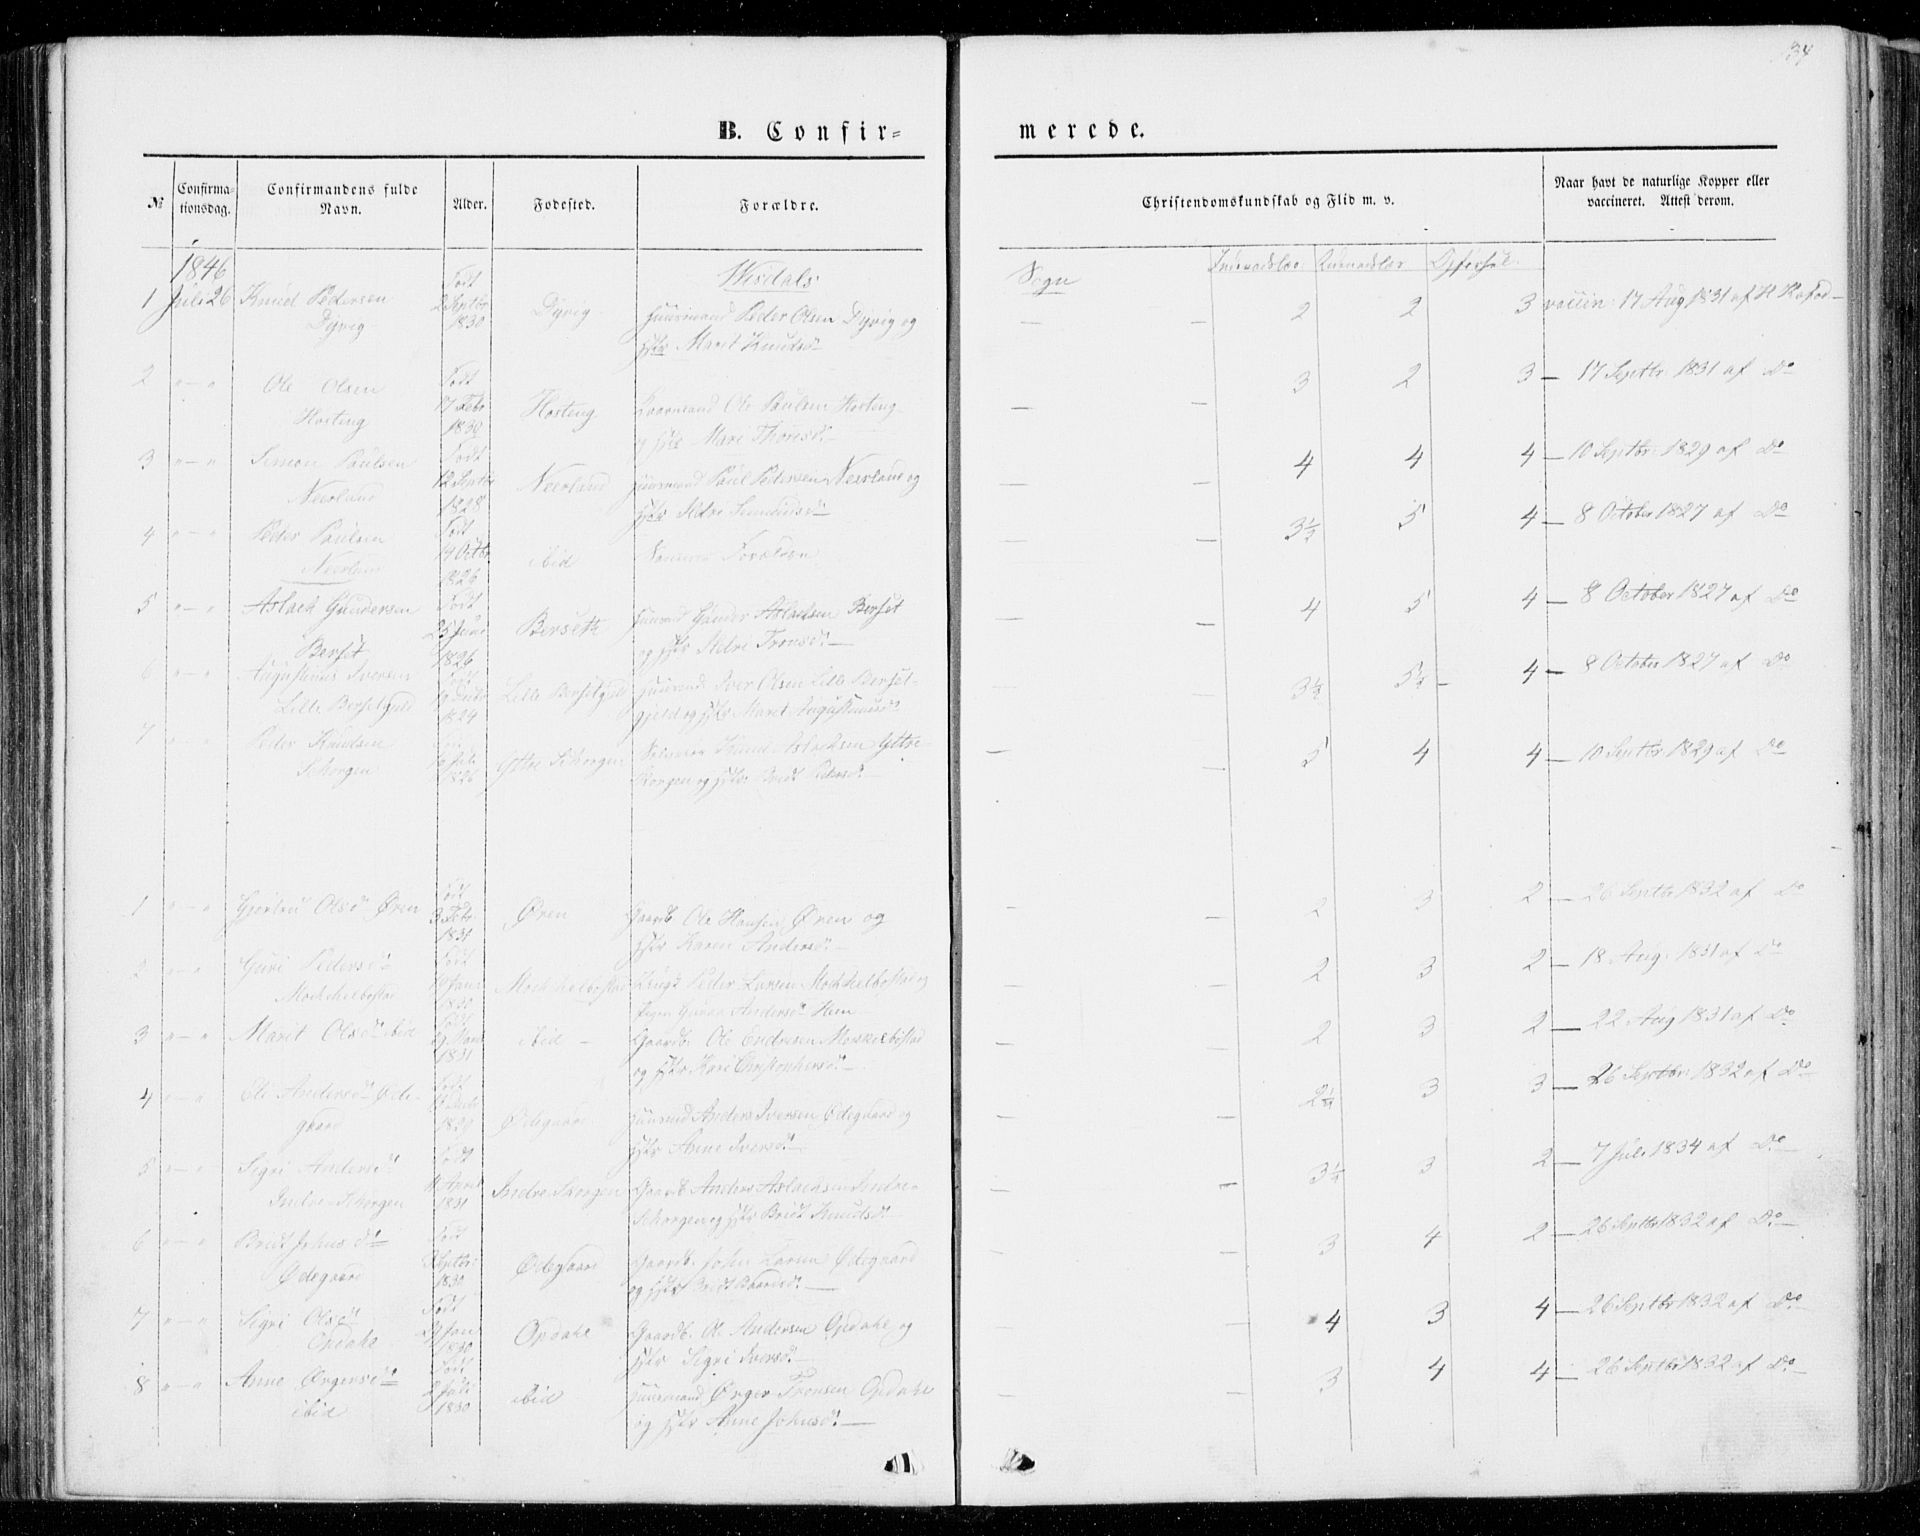 134
B. Confir=
merede.
№
Confirma-
tionsdag.
Confirmandens fulde
Navn.
Alder.
Fodested.
Forældre.
Christendomskundskab og Flid m. v.
Naar havt de naturlige Kopper eller
vaccineret. Attest derom.
1846
Wisdals
Sogn
1 Juli 26 Knud Pedersen
Dyvig
Født
2 Septbr
1830
Dyvig
Huusmand Peder Olsen Dyvig og
Hstr Marit Knudsd
2 2 3 vaccin: 17 Aug 1831 af H
2 " — " Ole Olsen
Hosteng
Født
17 Febr
1830
Hosteng
Ole Paulsen Hosteng
Mari Thoresd
3 2 3 — 17 Septbr 1831 af Do
3 " — " Simon Paulsen
Neerland
Født
12 Septbr
1828
Neerland
Huusmand Paul Pedersen Neerland og
Hstr Ildri
4 4 4 — 10 Septbr 1829 af Do
4 " — " Peder Paulsen
Neerland
Født
14 Octbr
1826
ibid
Forældre
3½ 5 4 — 8 October 1827 af Do
5 " — " Aslach Gundersen
Berset
Født
25 Juni
1826
Berseth
Gunder Aslachsen Berset
og Hstr Ildri Tronsd
4 5 4 — 8 October 1827 af Do
6 " — " Augustinus Iversen
Lille Bersetgield
1824
Lille Bersetgield
Iver Olsen Lille Berset-
gjeld og Hstr Marit Augustinusd
3½ 5½ 4 — 8 October 1827 af Do
7 " — " Peder Knudsen
Schorgen
Juli
1826
Yttre Schorgen
Knud Aslachsen Yttre
Skorgen og Hstr Brit Pedersd
5 4 4 — 10 Septbr 1829 af Do
1 " — " Gjertru Olsd Øren
Født
3 Febr
1831
Øren
Gaardb. Ole Hansen Øren og
Hstr Karen Andersd
2 3 2 — 26 Septbr 1832 af Do
2 " — " Guri Pedersd
Mochhelbostad
Født
19 Janr
1830
Mochhelbostad
Peder Larsen Mochhelbostad og
Andersd Hem
2 3 2 — 18 Aug: 1831 af Do
3 " — " Marit Olsd ibid
Født
29 Mars
1831
ibid
Gaardb. Ole Endresen Morskelbostad
og Hstr Kari Christophersd
2 3 2 — 22 Aug 1831 af Do
4 " — " Eli Andersd Øde-
gaard
Født
Ødegaard
Huusmd Anders Iversen Ødegaard og
Hstr Anne Iversd
3 3 — 26 Septbr: 1832 af Do
5 " — " Segri Andersd
Indre Schorgen
Født
April
1831
Indre Skorgen
Gaardb Anders Aslachsen Indre
Schorgen og Hstr Brit Knudsd
3½ 3 2 — 7 Juli 1834 af Do
6 " — " Brit Johnsd
Ødegaard
Født
Septbr
1830
Ødegaard
Gaardb. John Larsen Ødegaard
og Hstr Brit Baardsd
3 4 2 — 26 Septbr 1832 af Do
7 " — " Segri Olsd
Opdahl
Født
29 Jan
1830
Opdahl
Gaardb. Ole Andersen Opdahl og
Hstr Segri Iversd
4 3 4 — 26 Septbr 1832 af Do
8 " — " Anne Ørgersd
ibid
Født
Juli
1830
ibid
Huusmand Ørger Tronsen Opdahl
og Hstr Anne Johnsd
3 4 4 — 26 Septbr 1832 af Do